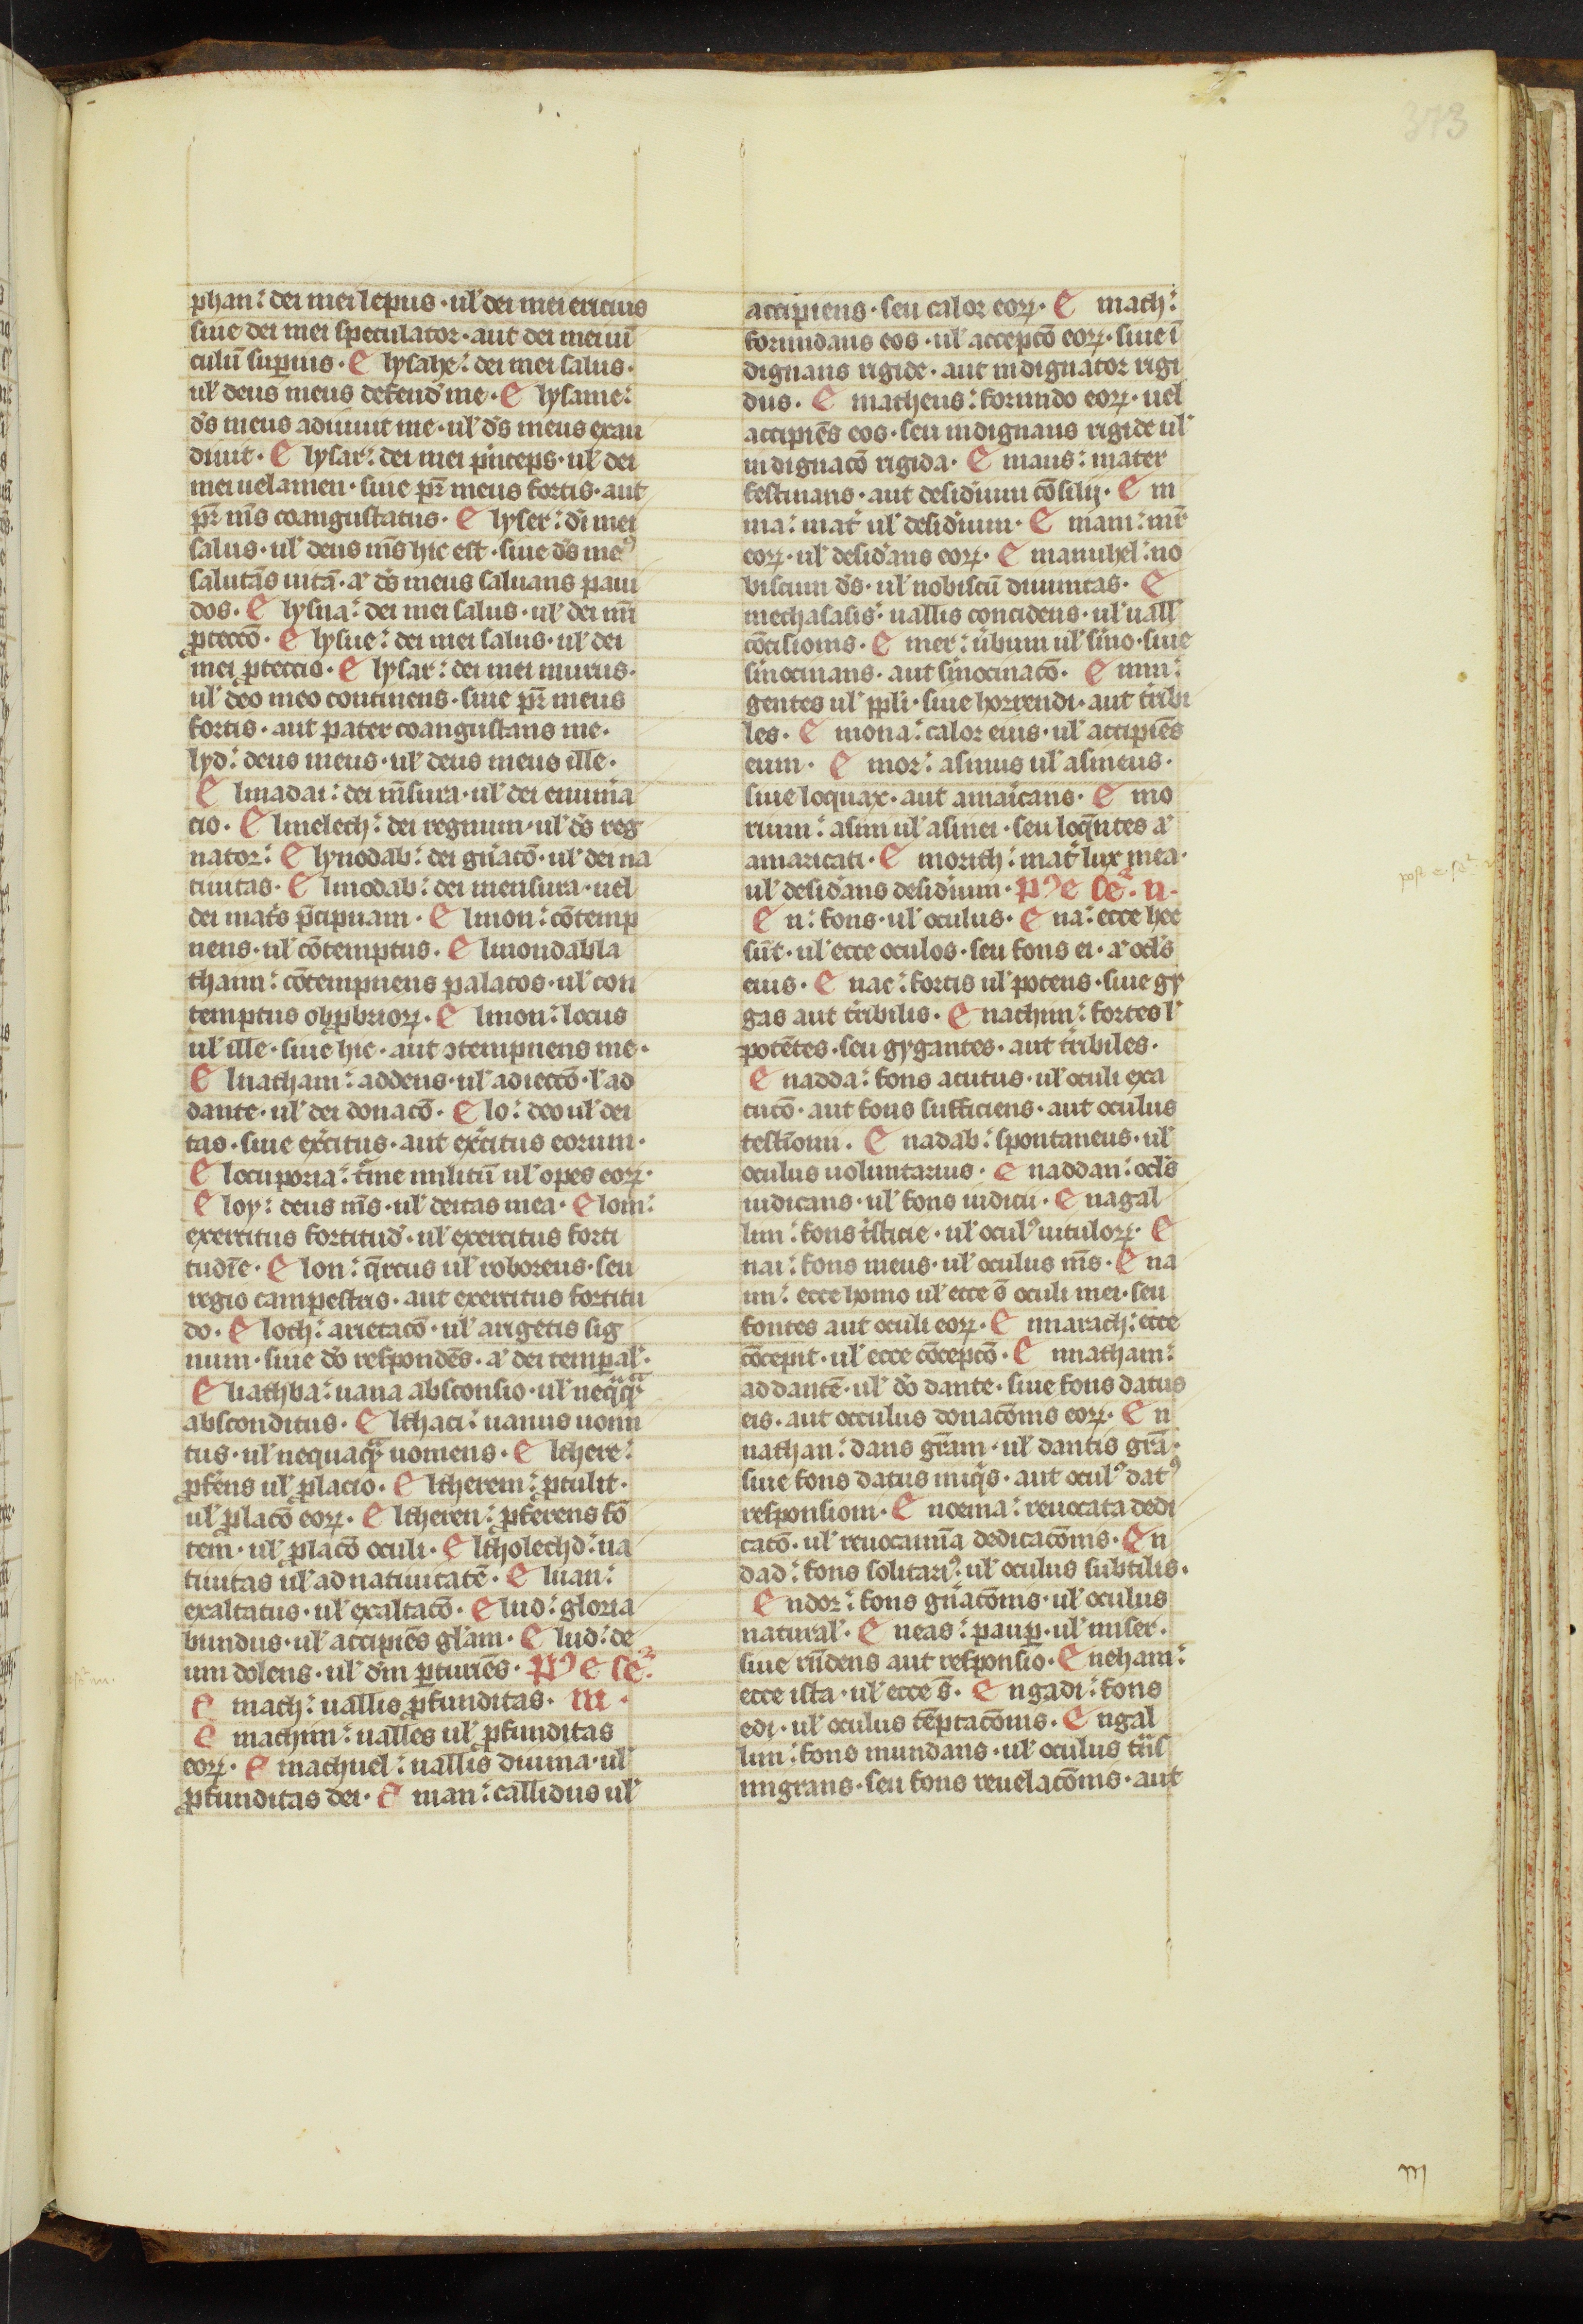 373
phan: dei mei lepus · ul' dei mei ericius
siue dei mei speculator · aut dei mei uī
culū supius · E lysabe: dei mei salus ·
ul' deus meus defend' me · E lysame:
d̄s meus adiuuit me · ul' d̄s meus exau
diuit · E lysar: dei mei pⁱnceps · ul' dei
mei uelamen · siue pr̄ meus fortis · aut
pr̄ m̄s coangustatus · E lyser: di mei
salus · ul' deus m̄s hic est · siue d̄s me⁹
salutās uitā · aᵗ d̄s meus saluans paui
dos · E lysua: dei mei salus · ul' dei mī
ꝓteccō · E lysue: dei mei salus · ul' dei
mei ꝓteccio · E lysar: dei mei murus ·
ul' deo meo continens · siue pr̄ meus
fortis · aut pater coangustans me ·
lyd: deus meus · ul' deus meus ille ·
E lmadai: dei m̄sura · ul' dei enumia
cio · E lmelech: dei regnum · ul' d̄s reg
nator: E lynodab: dei gn̄acō · ul' dei na
tiuitas · E lmodab: dei mensura · uel
dei mat's p̄cipuam · E lmon: cōtemp
nens · ul' cōtemptus · E lmondabla
thaim: cōtempnens palatos · ul' con
temptus obꝓbrioꝝ · E lmon: locus
ul' ille · siue hic · aut ɔtempnens me ·
E lnatham: addens · ul' adieccō · l' ad
dante · ul' dei donacō · E lo: deo ul' dei
tas · siue ex'citus · aut ex'citus eorum ·
E locuporia: t'mine militū ul' opes eoꝝ ·
E loy: deus m̄s · ul' deitas mea · E lom:
exercitus fortitud' · ul' exercitus forti
tudīe · E lon: q̄rcus ul' roboreus · seu
regio campestris · aut exercitus fortitu
do · E loth: arietacō · ul' arigetis sig
num · siue dō respondēs · aᵗ dei tempal' ·
E liathba: uana absconsio · ul' neqᵃqᵃ
absconditus · E lthaci: uanus uomi
tus · ul' nequaqᵃ uomens · E lthere:
ꝓfe'ns ul' ꝓlacio · E ltherem: ꝓtulit ·
ul' ꝓlacō eoꝝ · E ltheren: ꝓferens fō
tem · ul' ꝓlacō oculi · E ltholechd: na
tiuitas ul' ad natiuitatē · E luan:
exaltatus · ul' exaltacō · E lud: gloria
bundus · ul' accipiēs gl'am · E lud: de
um dolens · ul' dm̄ ꝑturiēs · P⁹ E sc̄
E mach: uallis ꝓfunditas · m ·
E machim: ualles ul' ꝓfunditas
eoꝝ · E machuel: uallis diuina · ul'
ꝓfunditas dei · E man: callidus ul'
accipiens · seu calor eoꝝ · E mach:
formidans eos · ul' accepcō eoꝝ · siue ī
dignans rigide · aut indignator rigi
dus · E matheus: formido eoꝝ · uel
accipiēs eos · seu indignans rigide ul'
indignacō rigida · E maus: mater
festinans · aut desid'ium cōsilij · E m
ma: mat' ul' desid'ium · E mam: mr̄
eoꝝ · ul' desid'ans eoꝝ · E manuhel: no
biscum d̄s · ul' nobiscū diuinitas · E
mechasasis: uallis concidens · ul' uall'
cōcisionis · E mer: u'bum ul' s'mo · siue
s'mocinans · aut s'mocinacō · E mim:
gentes ul' ppli · siue horrendi · aut t'ribi
les · E mona: calor eius · ul' accipiēs
eum · E mor: asinus ul' asineus ·
siue loquax · aut amaricans · E mo
rium: asini ul' asinei · seu loqᵉntes aᵗ
amaricati · E morith: mat' lux mea ·
ul' desid'ans desid'ium · P⁹ E sc̄ · n ·
E n: fons · ul' oculus · E na: ecce hee
sūt · ul' ecce oculos · seu fons ei · aᵗ oc'ls
eius · E nac: fortis ul' potens · siue gy
gas aut t'ribilis · E nachim: fortes l'
potētes · seu gygantes · aut t'ribiles ·
E nadda: fons acutus · ul' oculi exa
cucō · aut fons sufficiens · aut oculus
testiōnii · E nadab: spontaneus · ul'
oculus uoluntarius · E naddan: oc'ls
iudicans · ul' fons iudicii · E nagal
lim: fons t'isticie · ul' ocul⁹ uituloꝝ · E
nai: fons meus · ul' oculus m̄s · E na
im: ecce homo ul' ecce s̄ oculi mei · seu
fontes aut oculi eoꝝ · E nnarach: ecce
cōcepit · ul' ecce cōcepcō · E nnatham:
ad dantē · ul' dō dante · siue fons datus
eis · aut occulus donacōnis eoꝝ · E n
nathan: dans gr̄am · ul' dantis grā ·
siue fons datus iniqⁱs · aut ocul⁹ dat⁹
responsioni · E noema: reuocata dedi
catō · ul' reuocamīa dedicacōnis · E n
dad: fons solitari⁹ · ul' oculus subtilis ·
E ndor: fons gn̄acōnis · ul' oculus
natural' · E neas: paup · ul' miser ·
siue rn̄dens aut responsio · E neham:
ecce ista · ul' ecce s̄ · E ngadi: fons
edi · ul' oculus tēptacōnis · E ngal
lim: fons mundans · ul' oculus t'ns
migrans · seu fons reuelacōnis · aut
m